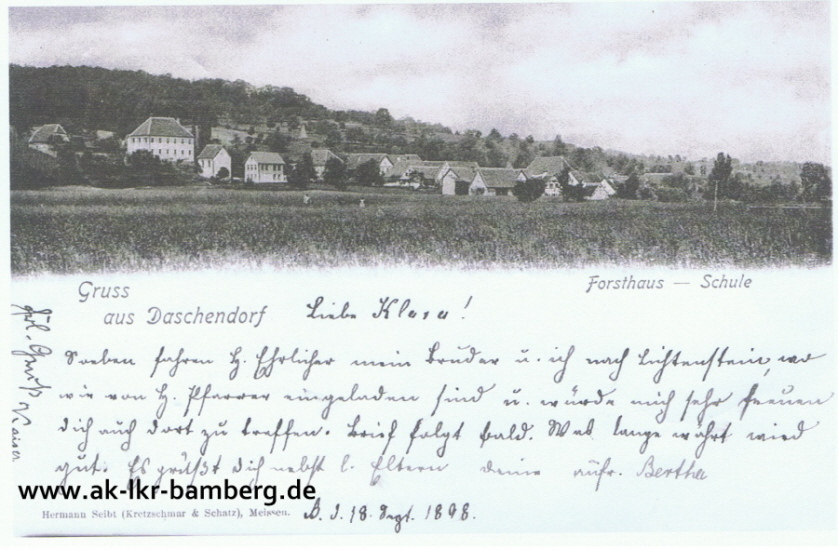 Gruss
aus Daschendorf
Forsthaus — Schule
Liebe Klara!
Soeben fahren H. Ehrlicher mein Bruder u. ich nach Lichtenstein, wo
wir von H. Pfarrer eingeladen sind u. würde mich sehr freuen
dich auch dort zu treffen. Brief folgt bald. Was lange währt wird
gut. Es grüßt dich nebst l. Eltern deine aufr. Bertha
Gruß Kaiser
www.ak-lkr-bamberg.de
Hermann Seibt (Kretzschmar & Schatz), Meissen.
18. Sept. 1898.